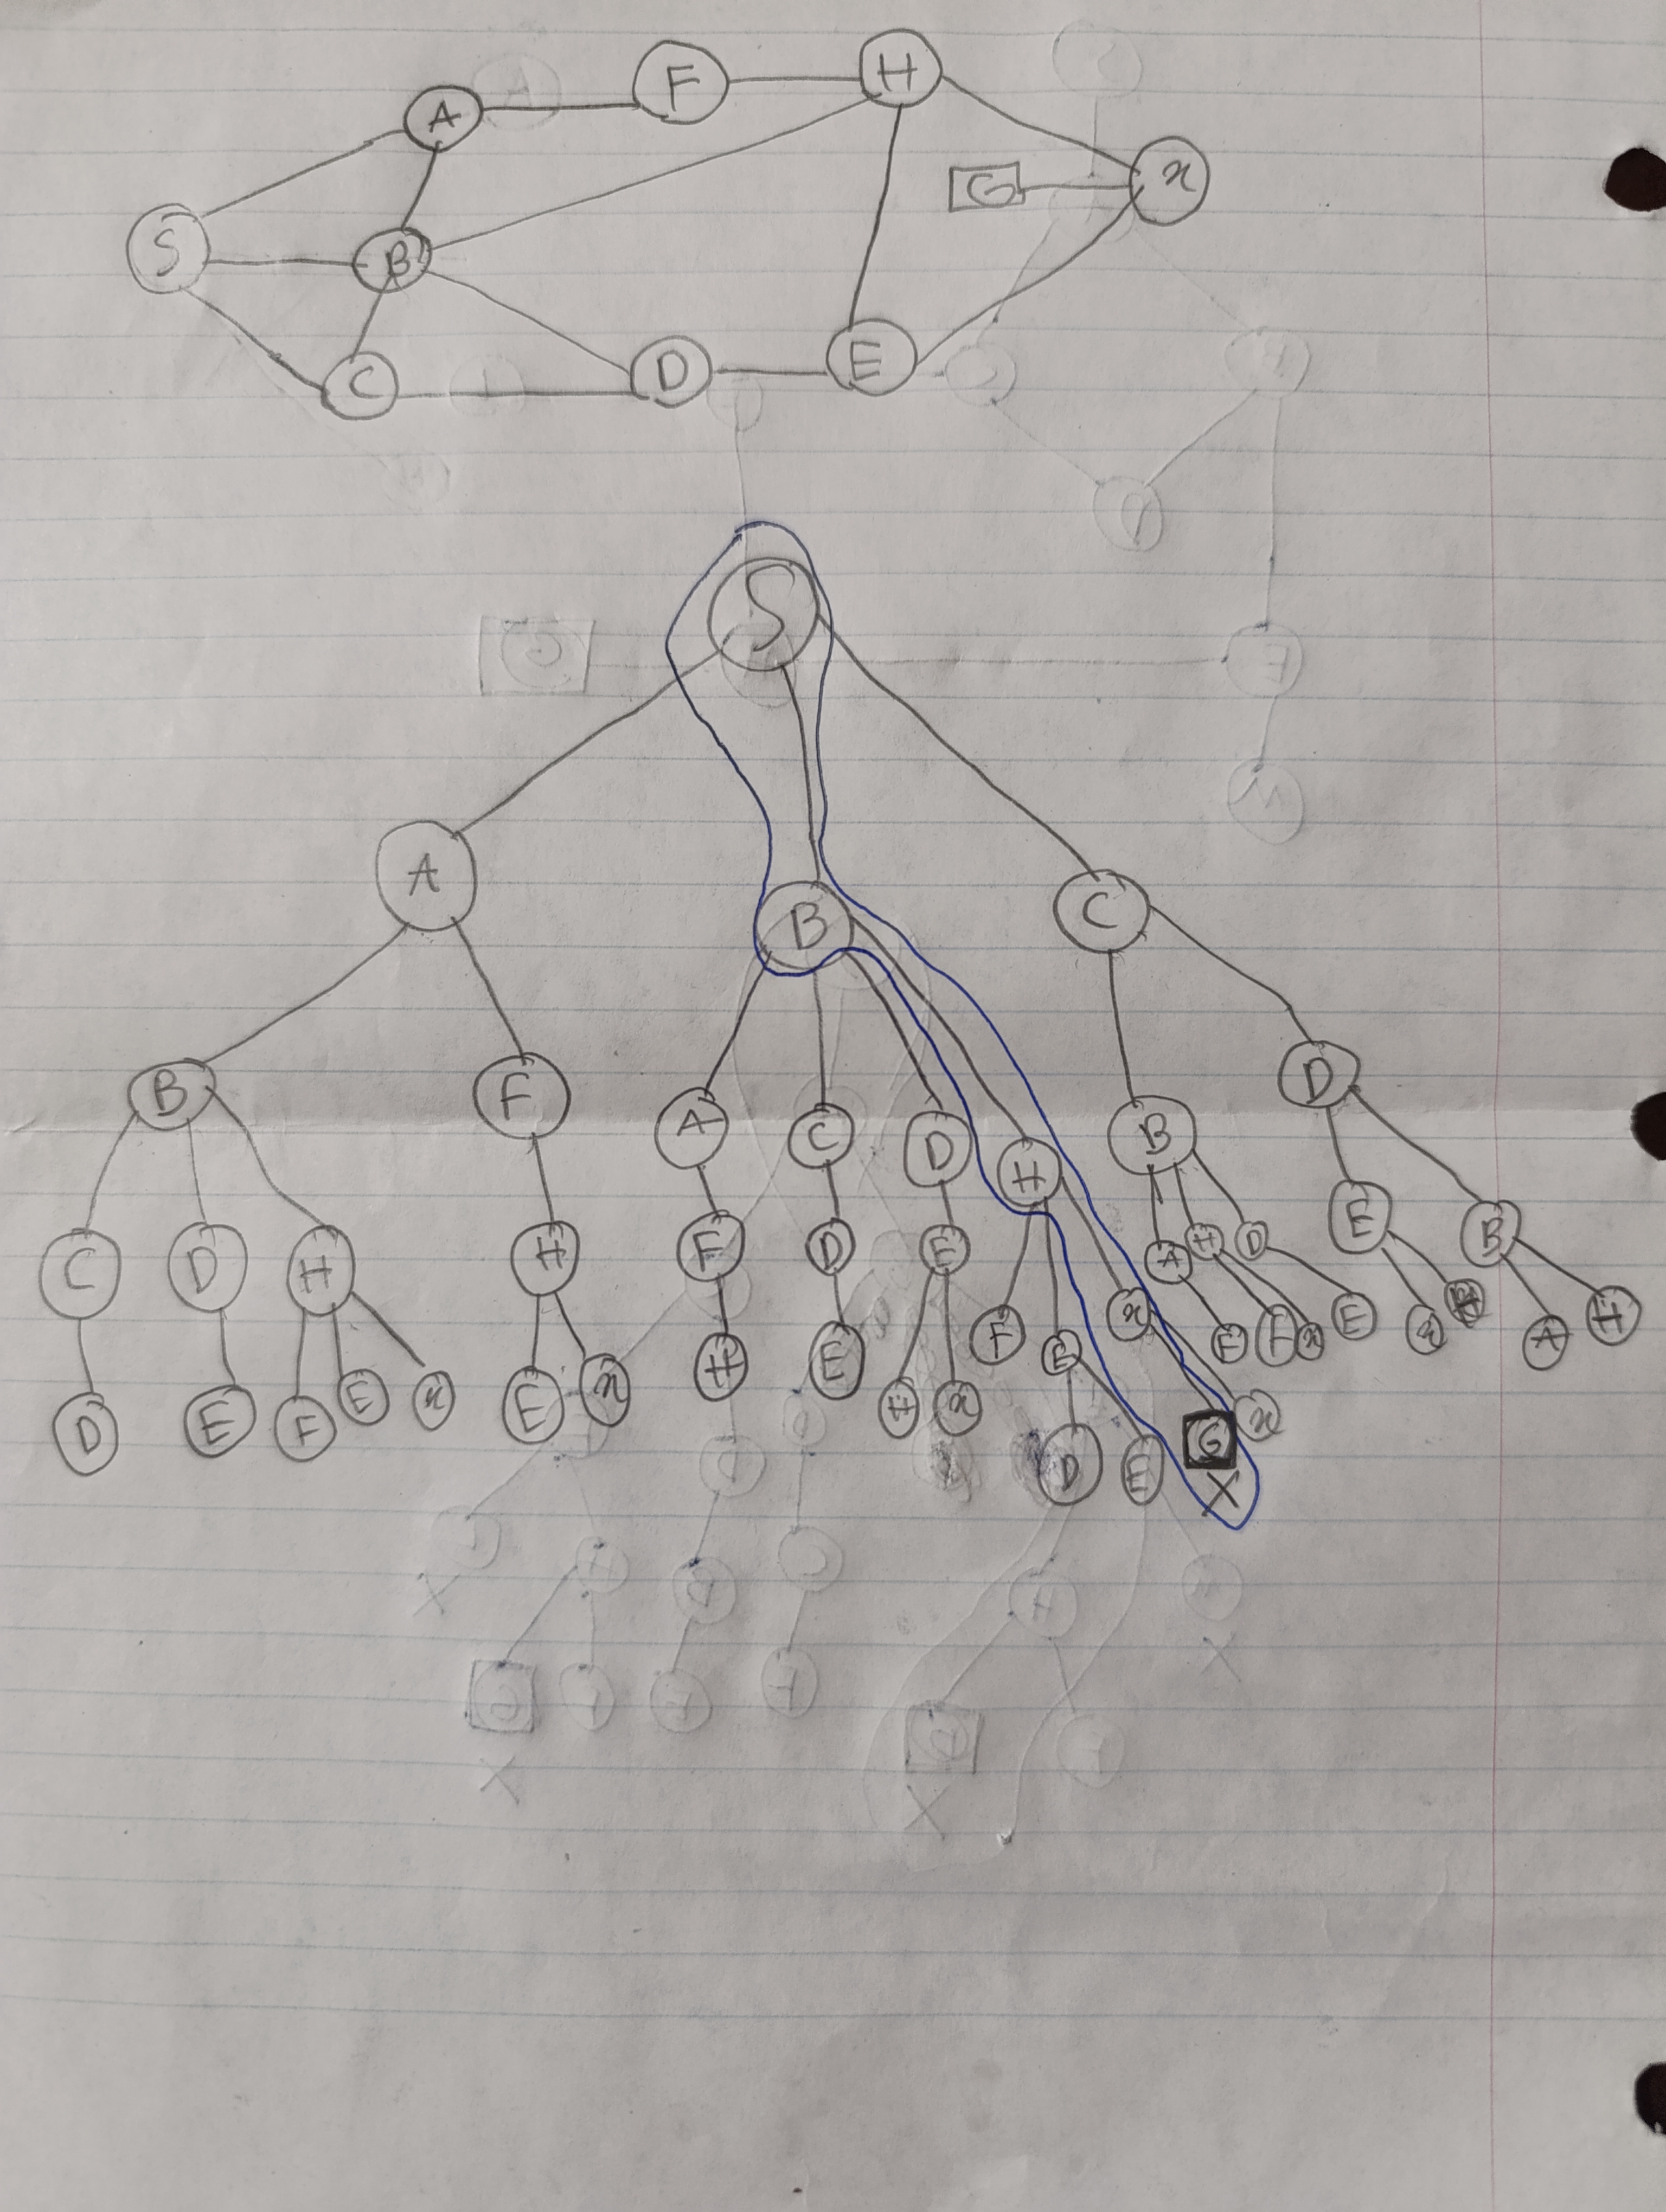 A F H
S B G x
C D E
S
A B C
B F A C D H B D
C D H H F D E F E x A H D E B
D E F E x E x H E H x D E G x F F x E x H A H
X